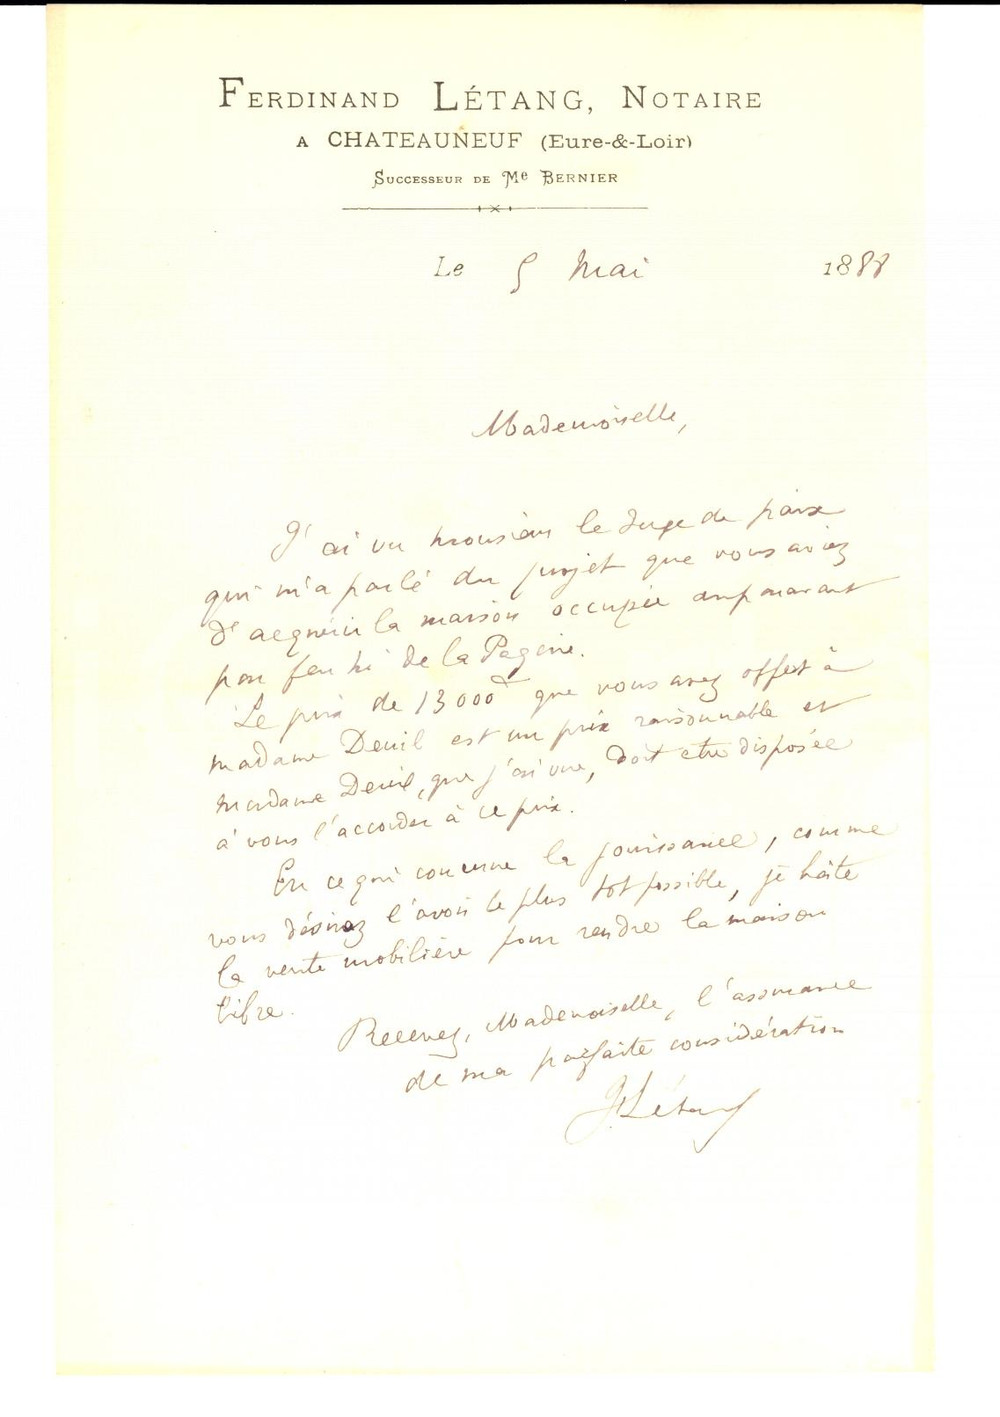 FERDINAND LÉTANG, NOTAIRE
A CHATEAUNEUF (Eure-&-Loir)
SUCCESSEUR DE Me BERNIER
Le 5 Mai 1888
Mademoiselle,
J'ai vu monsieur le Juge de paix
qui m'a parlé du projet que vous aviez
d'acquérir la maison occupée auparavant
par feu de la Pagerie.
Le prix de 13000 que vous avez offert à
madame Deuil est un prix raisonnable et
madame Deuil, que j'ai vue, doit être disposée
à vous l'accorder à ce prix.
En ce qui concerne la jouissance, comme
vous désirez l'avoir le plus tot possible, je hâte
la vente mobilière pour rendre la maison
libre.
Recevez, Mademoiselle, l'assurance
de ma parfaite considération
F. Létang